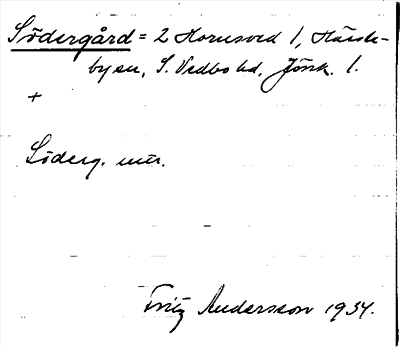 Södergård = 2 Hornsved 1, Härste-
byen, S. Vedbo hd, Jönk. l.
+
Söderg. mur.
Fritz Andersson 1934.